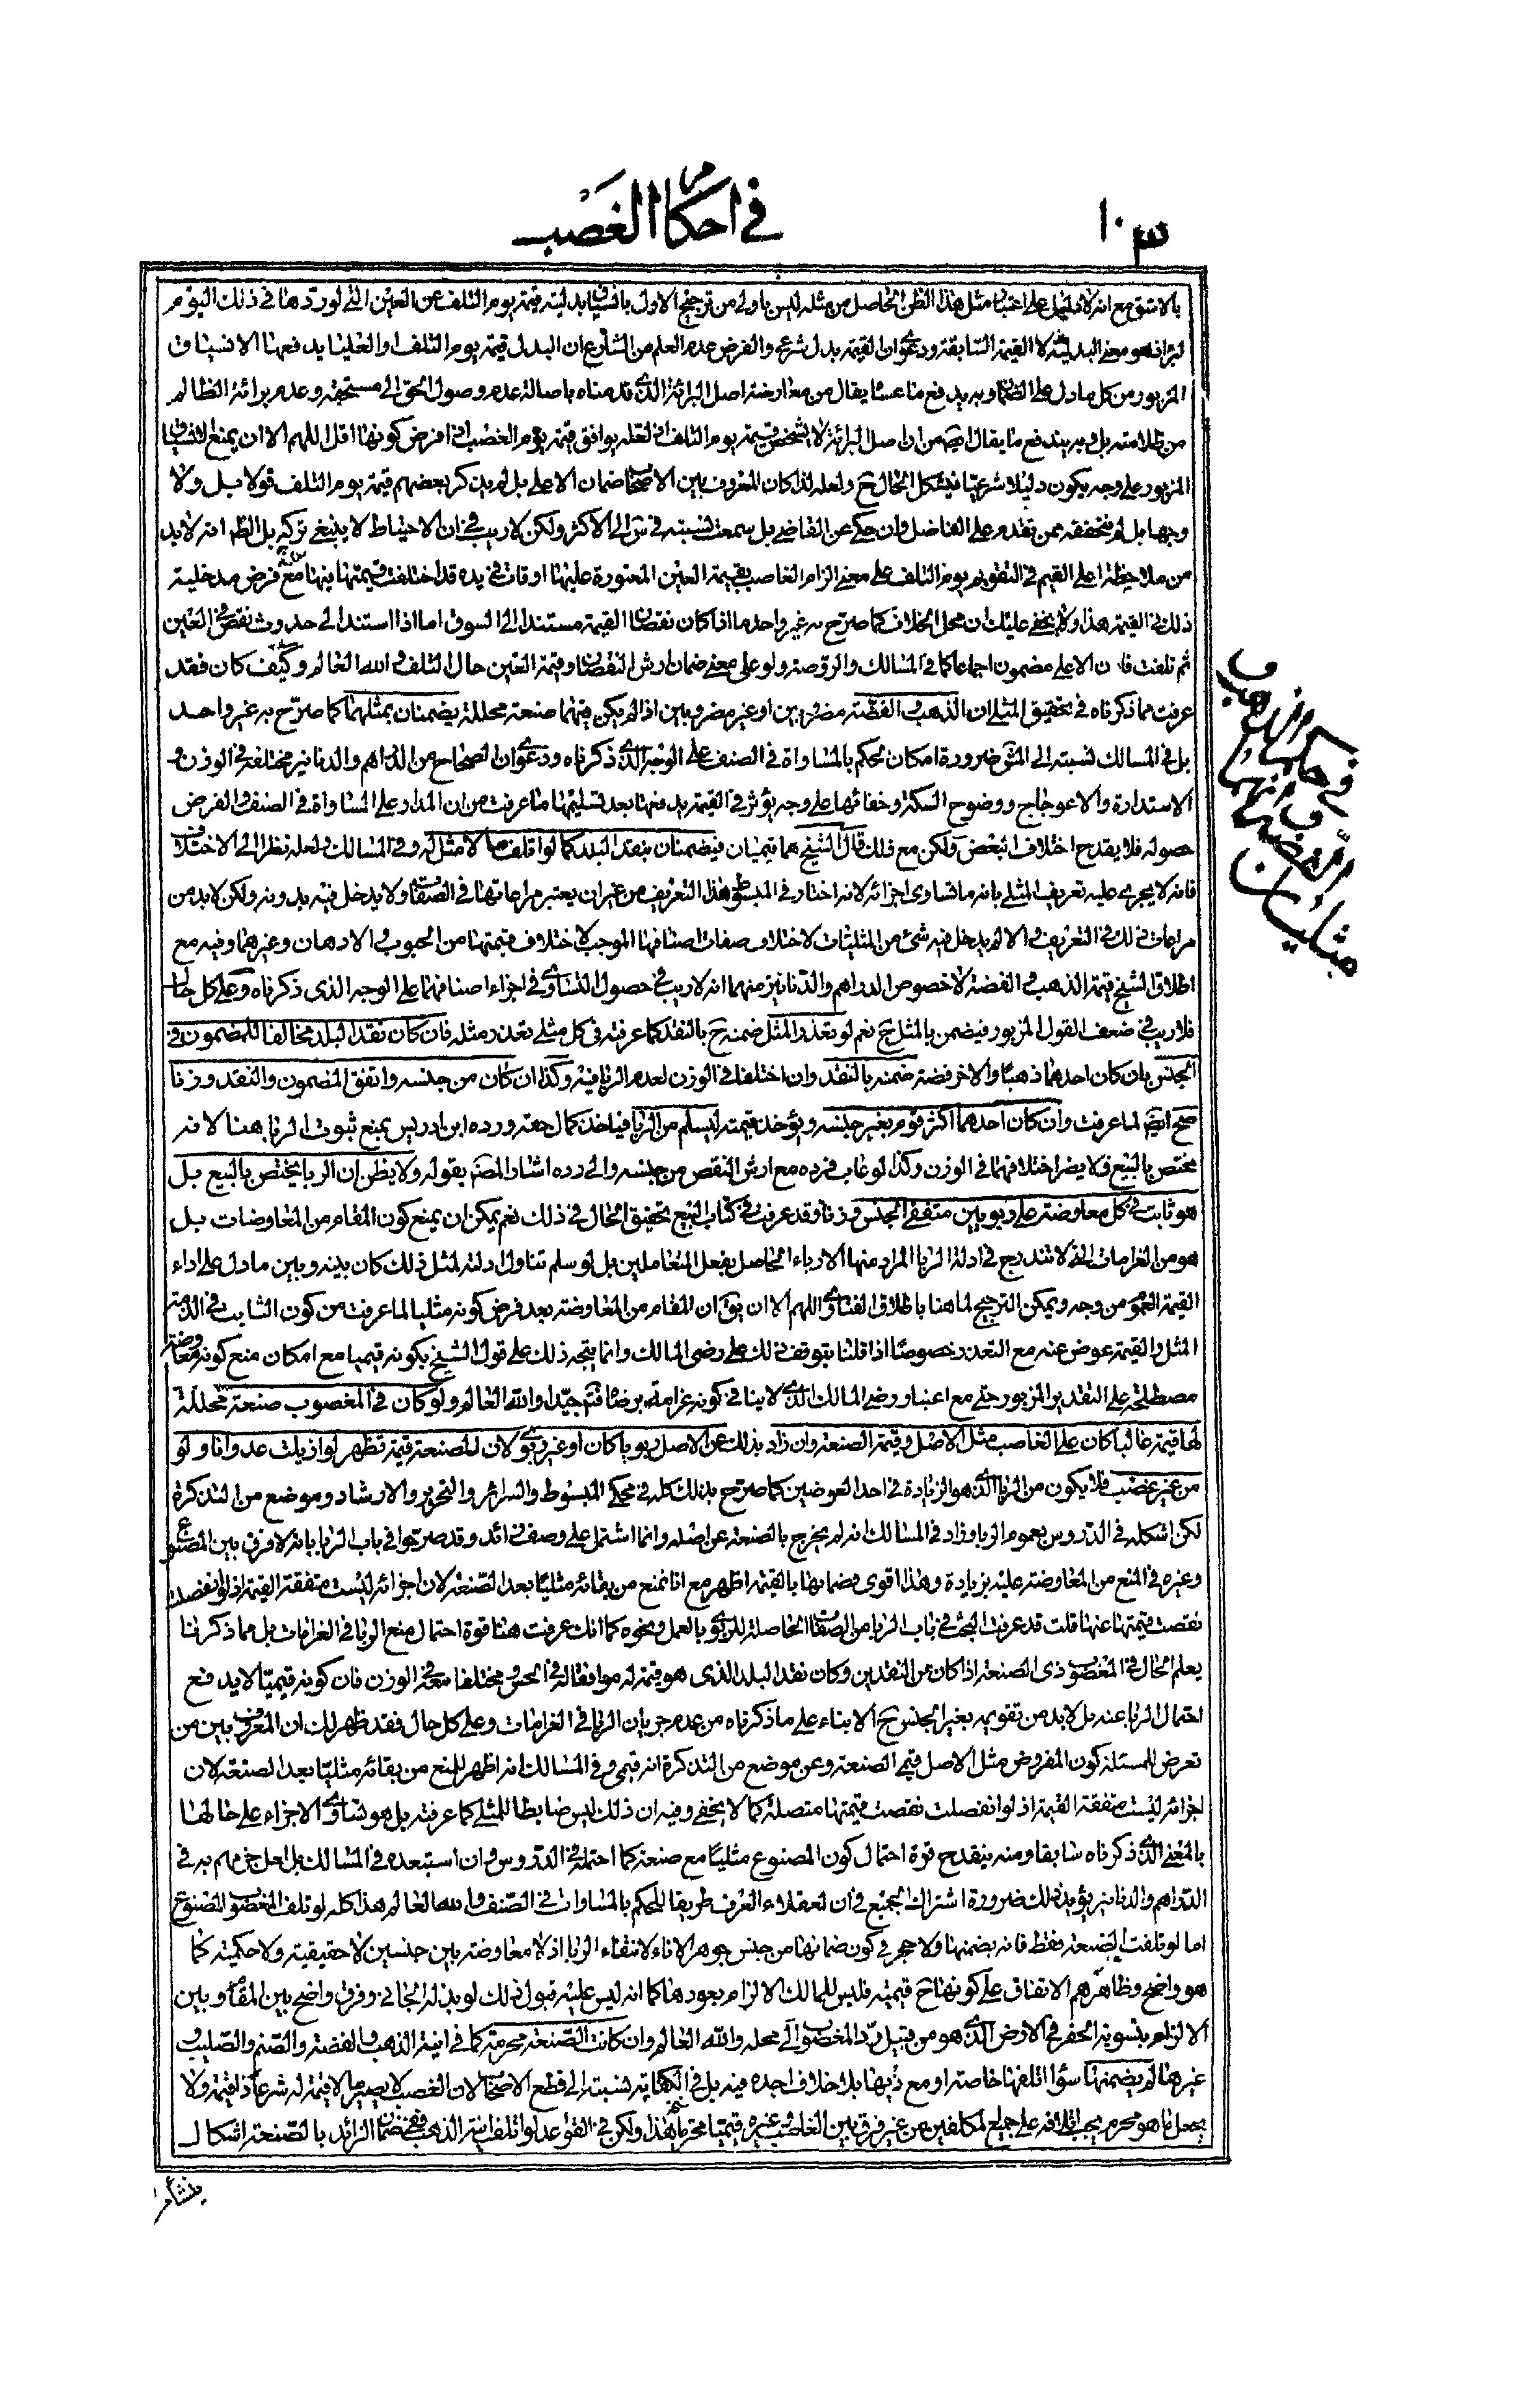 في احكام الغصب
١٠٣
بالاستقراء مع انه لا دليل على اعتبار مثل هذا الظن الحاصل من مثله ليس باولى من ترجيح الاول بانسياق بدلية قيمة يوم التلف عن العين التي لو ردها في ذلك اليوم
لبرأ اذ هو معنى البدلية لا القيمة السابقة ودعوى ان القيمة بدل شرعي والفرض عدم العلم من الشارع ان البدل قيمة يوم التلف او العليا يدفعها الانسياق
المزبور من كل ما دل على الضمان وبه يدفع ما عساه يقال من معارضة اصل البرائة الذي قدمناه باصالة عدم وصول الحق الى مستحقه وعدم برائة الظالم
من ظلامته بل وبه يندفع ما يقال ايضا من ان اصل البرائة لا يشخص قيمة يوم التلف اذ لعله يوافق قيمة يوم الغصب اذا فرض كونها اقل اللهم الا ان يمنع الانسياق
المزبور على وجه يكون دليلا شرعيا فيشكل الحال ح ولعله لذا كان المعروف بين الاصحاب ضمان الاعلى بل لم يذكر بعضهم قيمة يوم التلف قولا بل ولا
وجها بل لم نتحققه ممن تقدم على الفاضل وان حكى عن القاضي بل سمعت نسبته في س الى الاكثر ولكن لا ريب في ان الاحتياط لا ينبغي تركه بل الظ انه لا بد
من ملاحظة اعلى القيم في التقويم يوم التلف على معنى الزام الغاصب بقيمة العين المعتورة عليها اوقات في يده قد اختلفت قيمتها فيها مع فرض مدخلية
ذلك في القيمة هذا ولا يخفى عليك ان محل الخلاف كما صرح به غير واحد ما اذا كان نقصان القيمة مستندا الى السوق اما اذا استند الى حدوث نقص في العين
ثم تلفت فان الاعلى مضمون اجماعا كما في المسالك والروضة ولو على معنى ضمان ارش النقصان وقيمة العين حال التلف والله العالم وكيف كان فقد
عرفت مما ذكرناه في تحقيق المثلي ان الذهب والفضة مضروبين او غير مضروبين اذا لم يكن فيهما صنعة محللة يضمنان بمثلهما كما صرح به غير واحد
بل في المسالك نسبته الى المش ضرورة امكان الحكم بالمساواة في الصنف على الوجه الذي ذكرناه ودعوى ان الصحاح من الدراهم والدنانير مختلفة في الوزن و
الاستدارة والاعوجاج ووضوح السكة وخفائها على وجه يؤثر في القيمة يدفعها بعد تسليمها ما عرفت من ان المدار على المساواة في الصنف والفرض
حصوله فلا يقدح اختلاف البعض ولكن مع ذلك قال الشيخ هما قيميان فيضمنان بنقد البلد كما لو اتلف ما لا مثل له وفي المسالك ولعله نظر الى الاختلاف
فانه لا يجري عليه تعريف المثلي بانه ما تساوى اجزائه لانه اختار في المبسوط هذا التعريف من غير ان يعتبر مراعاتها في الصفات ولا يدخل فيه بدونه ولكن لا بد من
مراعات ذلك في التعريف والا لم يدخل فيه شئ من المثليات لاختلاف صفات اصنافها الموجب لاختلاف قيمتها من الحبوب والادهان وغيرهما وفيه مع
اطلاق الشيخ قيمة الذهب والفضة لا خصوص الدراهم والدنانير منهما انه لا ريب في حصول التساوي في اجزاء اصنافهما على الوجه الذي ذكرناه وعلى كل حال
فلا ريب في ضعف القول المزبور فيضمن بالمثل ح نعم لو تعذر المثل ضمنه ح بالنقد كما عرفته في كل مثلي تعذر مثله فان كان نقد البلد مخالفا للمضمون في
الجنس بان كان احدهما ذهبا والاخر فضة ضمنه بالنقد وان اختلفا في الوزن لعدم الربا فيه وكذا ان كان من جنسه واتفق المضمون والنقد وزنا
صح ايضا لما عرفت وان كان احدهما اكثر قوم بغير جنسه ويؤخذ قيمته ليسلم من الربا فياخذ كمال حقه ورده ابن ادريس بمنع ثبوت الربا هنا لانه
مختص بالبيع فلا يضر اختلافهما في الوزن وكذا لو غاب فرده مع ارش النقص من جنسه والى رده اشار المصنف بقوله ولا يظن ان الربا يختص بالبيع بل
هو ثابت في كل معاوضة على ربويين متفقي الجنس وزنا وقد عرفت في كتاب البيع تحقيق الحال في ذلك نعم يمكن ان يمنع كون المقام من المعاوضات بل
هو من الغرامات التي لا تندرج في ادلة الربا المراد منها الارباء الحاصل بفعل المتعاملين بل لو سلم تناول ادلته لمثل ذلك كان بينه وبين ما دل على اداء
القيمة العموم من وجه ويمكن الترجيح لما هنا باطلاق الفتاوى اللهم الا ان يقال ان المقام من المعاوضة بعد فرض كونه مثليا لما عرفت من كون الثابت في الذمة
المثل والقيمة عوض عنه مع التعذر خصوصا اذا قلنا بتوقف ذلك على رضى المالك وانما يتجه ذلك على قول الشيخ بكونه قيميا مع امكان منع كونه معاوضة
مصطلحة على التقدير المزبور حتى مع اعتبار رضى المالك الذي لا ينافي كونه غرامة برضاه فتم جيدا والله العالم ولو كان في المغصوب صنعة محللة
لها قيمة غالبا كان على الغاصب مثل الاصل وقيمة الصنعة وان زاد بذلك عن الاصل ربويا كان او غير ربوي لان للصنعة قيمة تظهر لو ازيلت عدوانا ولو
من غير غصب فلا يكون من الربا الذي هو الزيادة في احد العوضين كما صرح بذلك كله في محكي المبسوط والسرائر والتحرير والارشاد وموضع من التذكرة
لكن اشكله في الدروس بعموم الربا وزاد في المسالك انه لم يخرج بالصنعة عن اصله وانما اشتمل على وصف زائد وقد صرحوا في باب الربا بانه لا فرق بين المصنوع
وغيره في المنع من المعاوضة عليه بزيادة وهذا اقوى وضمانها بالقيمة اظهر مع انا نمنع من بقائه مثليا بعد الصنعة لان اجزائه ليست متفقة القيمة اذ لو انفصلت
نقصت قيمتها عنها قلت قد عرفت البحث في باب الربا من الصفات الحاصلة للربوي بالعمل ونحوه كما انك عرفت هنا قوة احتمال منع الربا في الغرامات بل مما ذكرنا
يعلم الحال في المغصوب ذي الصنعة اذا كان من النقدين وكان نقد البلد الذي هو قيمة له موافقا له في الجنس مختلفا معه في الوزن فان كونه قيميا لا يدفع
احتمال الربا عنه بل لا بد من تقويمه بغير الجنس ح الا بناء على ما ذكرناه من عدم جريان الربا في الغرامات وعلى كل حال فقد ظهر لك ان المعروف بين من
تعرض للمسئلة كون المفروض مثلي الاصل قيمي الصنعة وعن موضع من التذكرة انه قيمي وفي المسالك انه اظهر للمنع من بقائه مثليا بعد الصنعة لان
اجزائه ليست متفقة القيمة اذ لو انفصلت نقصت قيمتها متصلة كما لا يخفى وفيه ان ذلك ليس ضابطا للمثلي كما عرفته بل هو تساوي الاجزاء على حالها
بالمعنى الذي ذكرناه سابقا ومنه ينقدح قوة احتمال كون المصنوع مثليا مع صنعته كما احتمله في الدروس وان استبعده في المسالك بل لعل جزمهم به في
الدراهم والدنانير يؤيد ذلك ضرورة اشتراك الجميع في ان لعقلاء العرف طريقا للحكم بالمساوات في الصنف والله العالم هذا كله لو تلف المغصوب المصنوع
اما لو تلفت الصنعة فقط فانه يضمنها ولا حجر في كون ضمانها من جنس جوهر الاناء لانتفاء الربا اذ لا معاوضة بين جنسين لا حقيقية ولا حكمية كما
هو واضح وظاهرهم الاتفاق على كونها ح قيمية فليس للمالك الالزام بعودها كما انه ليس عليه قبول ذلك لو بذله الجاني وفرق واضح بين المقام وبين
الالزام بتسوية الحفر في الارض الذي هو من قبيل رد المغصوب الى محله والله العالم وان كانت الصنعة محرمة كما في انية الذهب والفضة والصنم والصليب و
غيرها لم يضمنها سواء اتلفها خاصة او مع ذيها بلا خلاف اجده فيه بل في الكفاية نسبته الى قطع الاصحاب لان الغصب لا يصير ما لا قيمة له شرعا ذا قيمة ولا
يجعل ما هو محرم يجب اتلافه على جميع المكلفين من غير فرق بين الغاصب وغيره قيميا محترما هذا ولكن في القواعد لو اتلف انية الذهب ففي ضمان الزائد بالصنعة اشكال
ينشأ من
في حكم الذهب و
الفضة وانهما
مثليان